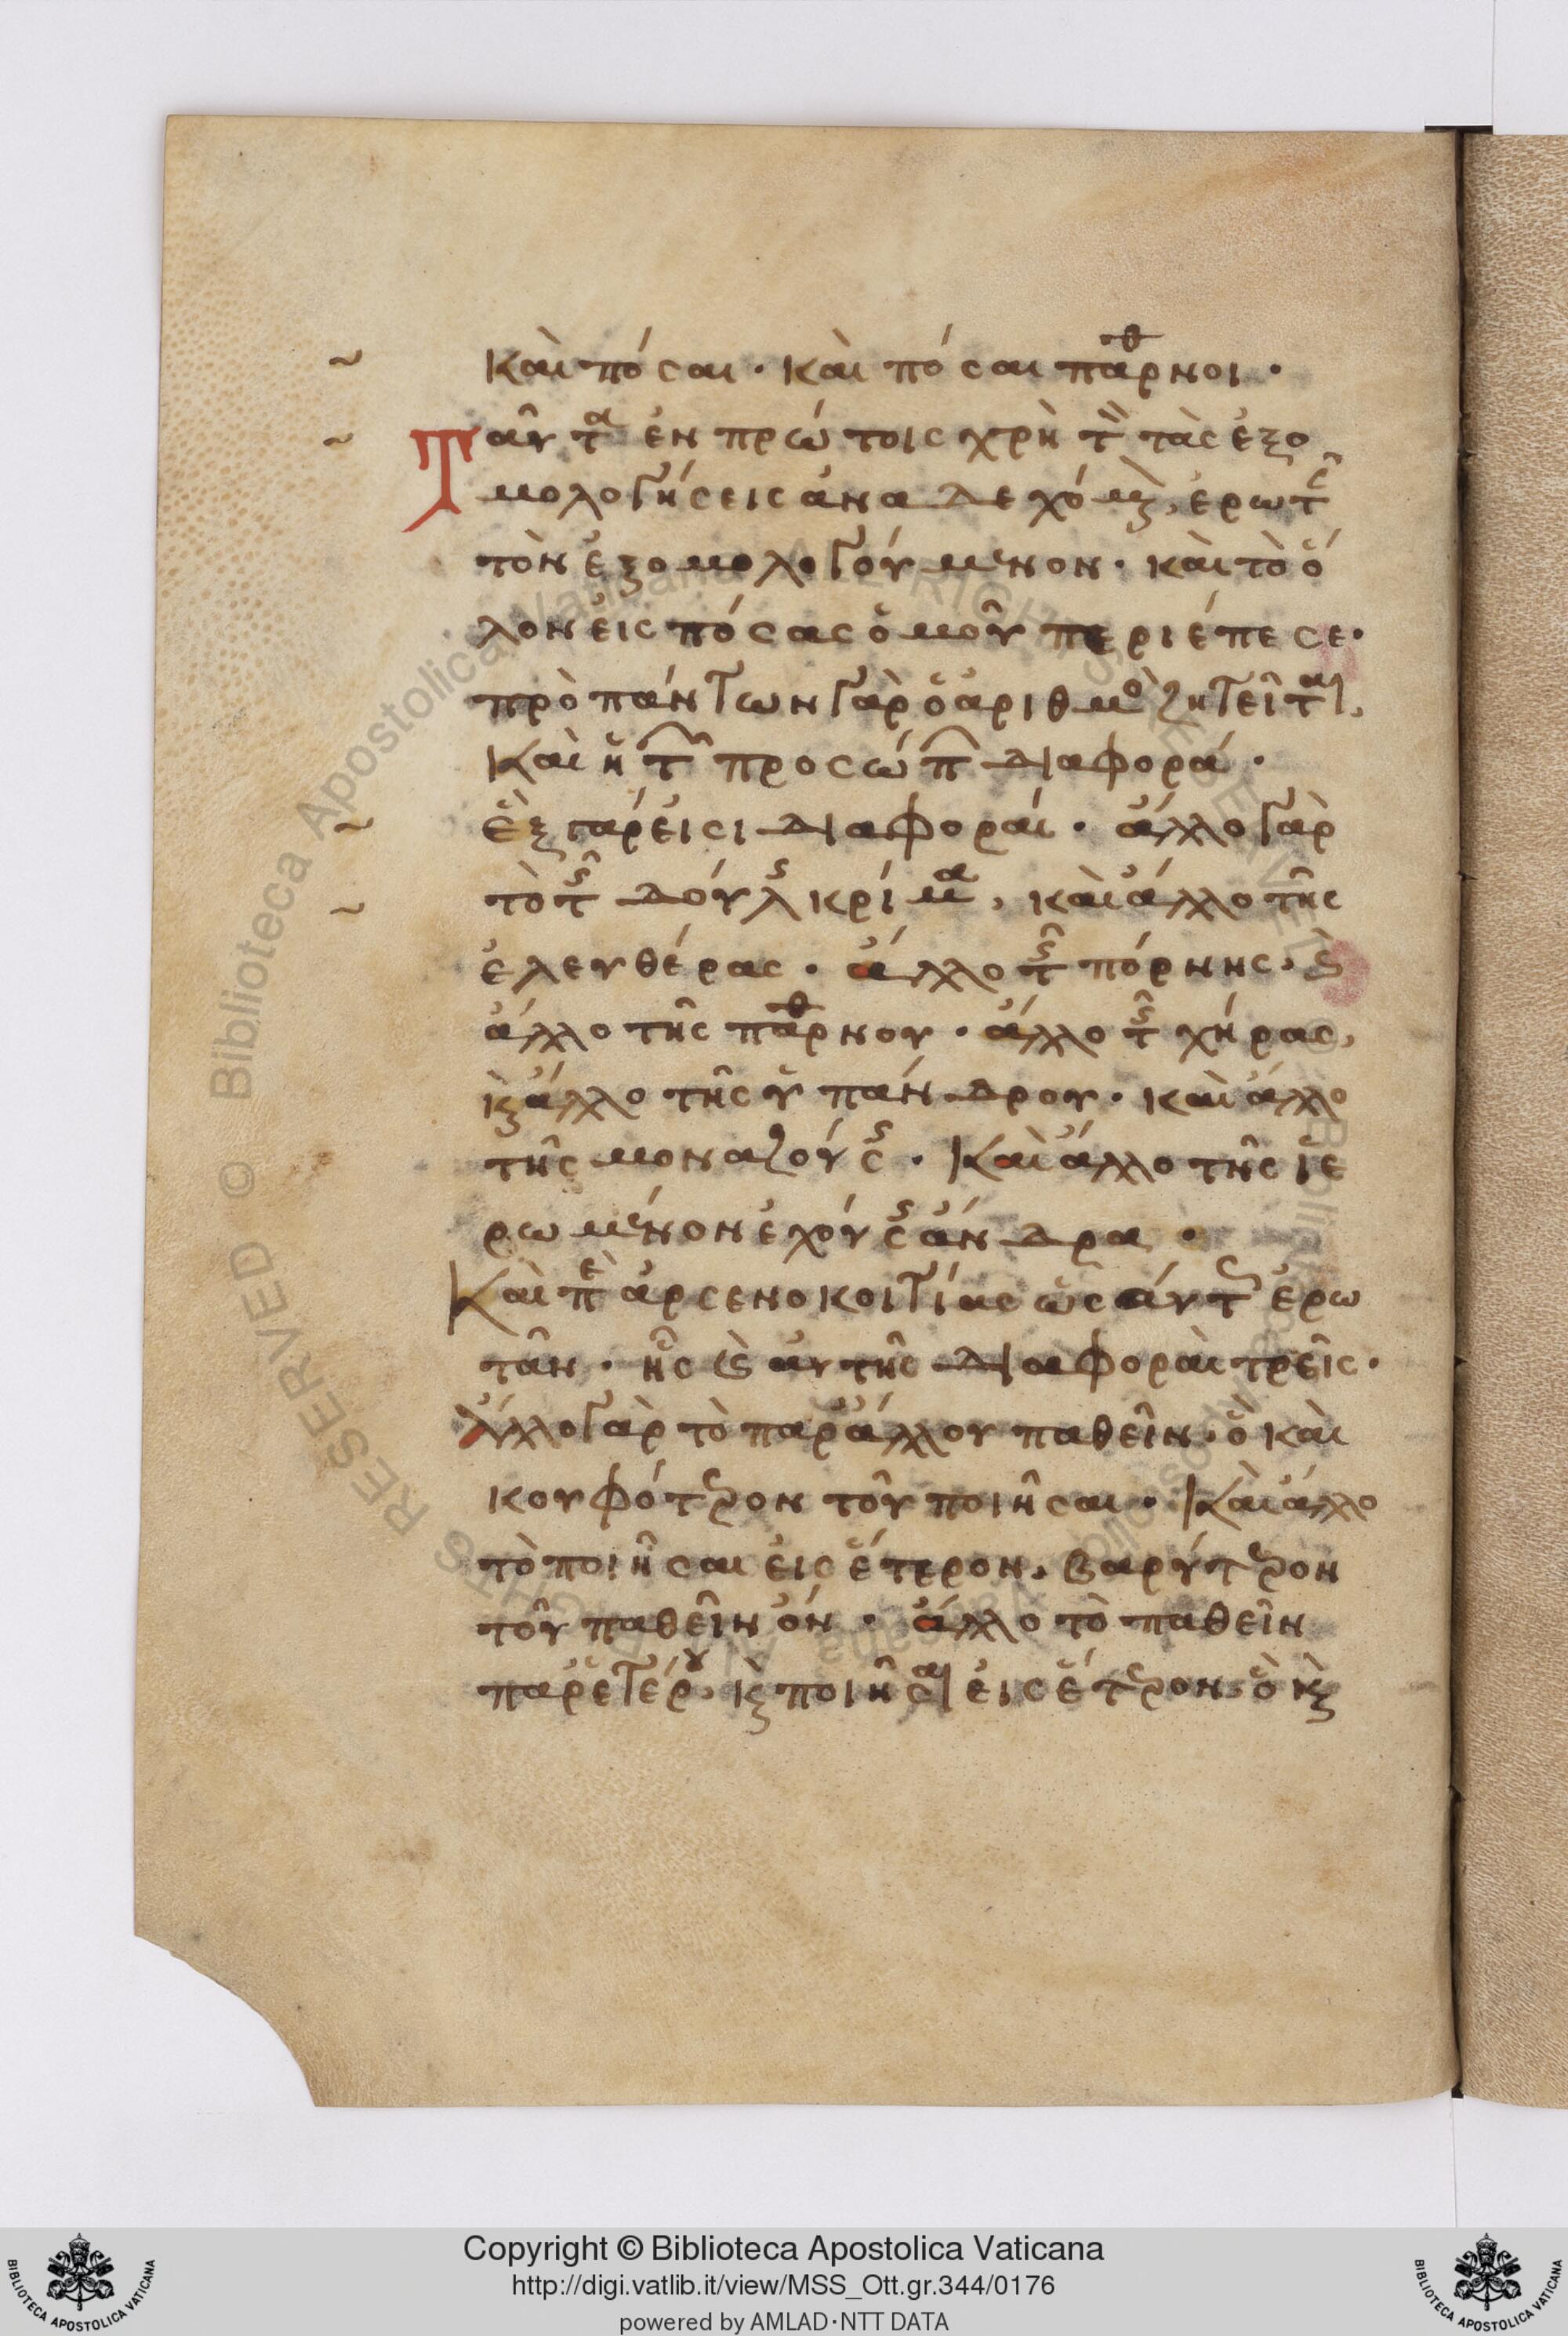 καὶ πόσαι · καὶ πόσαι παρθνοι ·
Ταῦτα ἐν πρώτοις χρὴ τ̀ τὰς ἐξο
μολογήσεις ἀναδεχόμ, ἐρωτ
τὸν ἐξομολογούμενον · καὶ τὸ ὅ
λον εἰς πόσας ὁμοῦ περιέπεσε ·
πρὸ πάντων γὰρ ὁ ἀριθμὸ ζητεῖται,
καὶ ἡ τ προσώπ διαφορά ·
ἓξ γάρ εἰσι διαφοραί · ἄλλο γὰρ
τὸ τ δούλ κρίμα, καὶ ἄλλο τῆς
ἐλευθέρας · ἄλλο τ πόρνης, ϛ
ἄλλο τῆς παρθνου · ἄλλο τ χήρας,
κ̀ ἄλλο τῆς ὑπάνδρου · καὶ ἄλλο
τῆς μοναζούσ · Καὶ ἄλλο τῆς ἱε
ρωμένον ἐχούσ ἄνδρα ·
Καὶ πε ἀρσενοκοιτίας ὡσαύτ ἐρω
τᾶν · ἧς ϛ αὐτῆς διαφοραὶ τρεῖς ·
Ἄλλο γὰρ τὸ παρ ἄλλου παθεῖν, ὃ καὶ
κουφότερον τοῦ ποιῆσαι · Καὶ ἄλλο
τὸ ποιῆσαι εἰς ἕτερον, βαρύτερον
τοῦ παθεῖν ὄν · ἄλλο τὸ παθεῖν
παρ ἑτέρου, κ̀ ποιῆσαι εἰς ἕτερον, ὃ κ̀
Copyright © Biblioteca Apostolica Vaticana
http://digi.vatlib.it/view/MSS_Ott.gr.344/0176
powered by AMLAD·NTT DATA